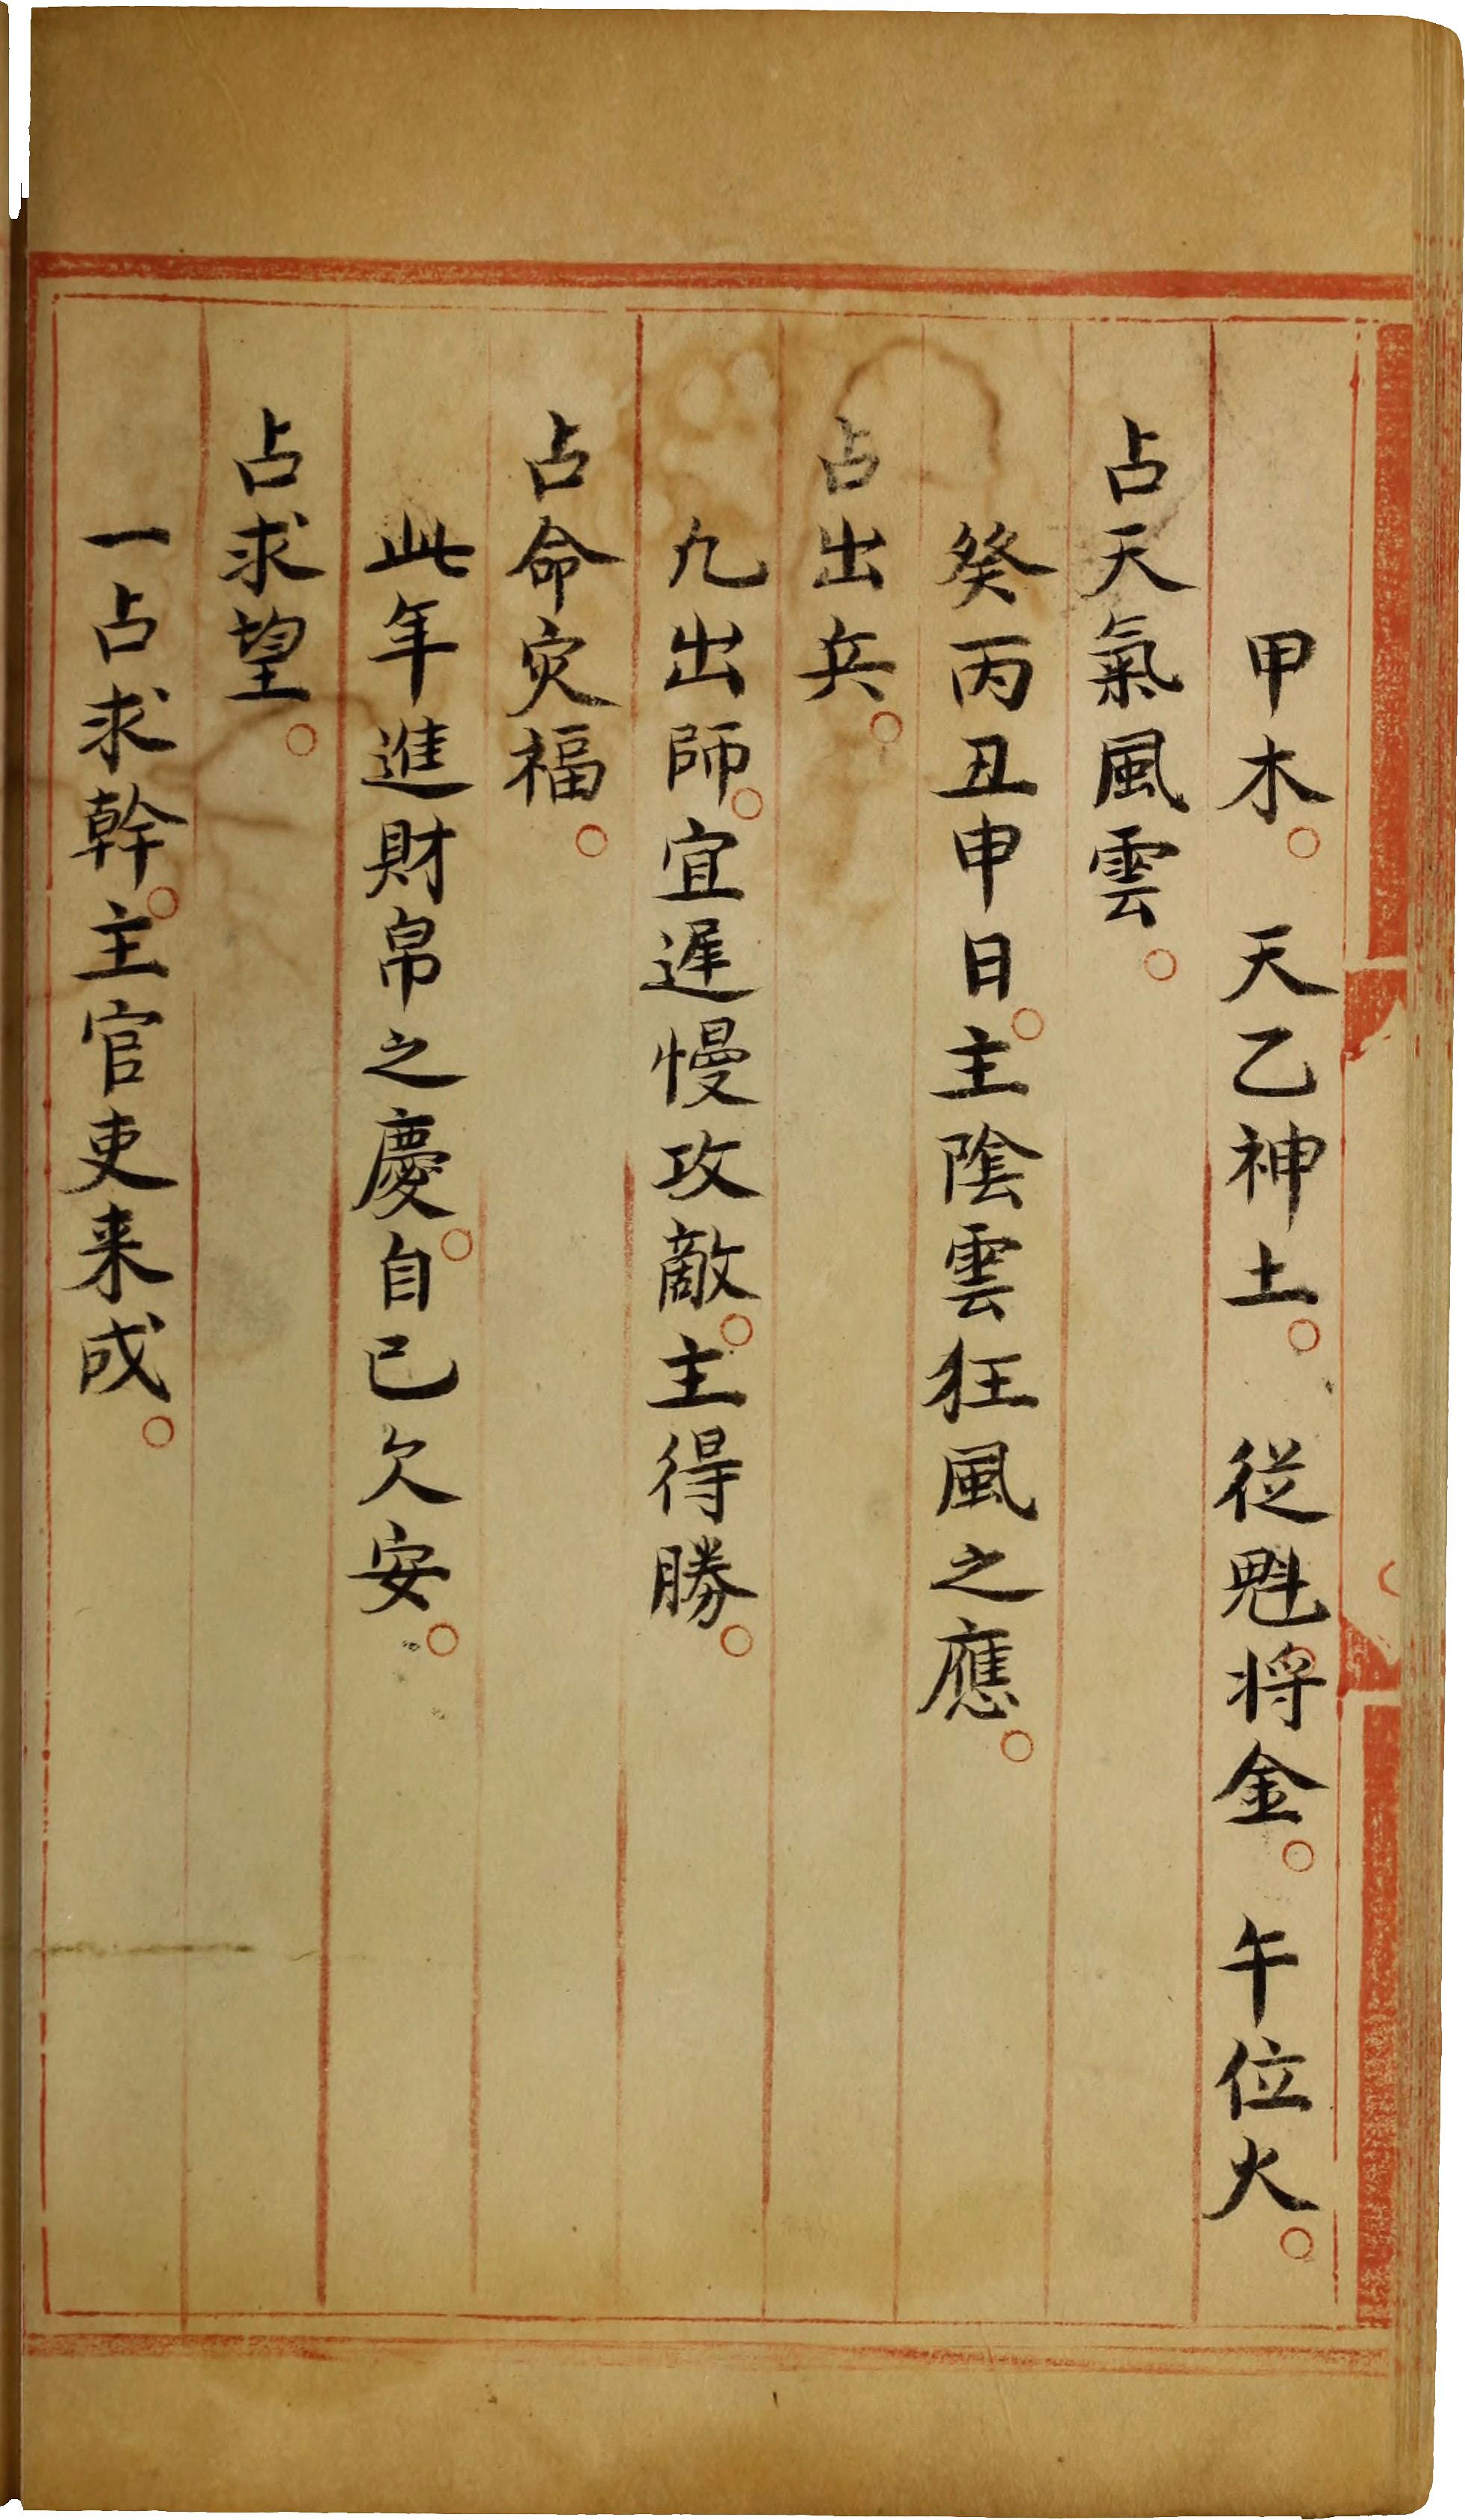 甲木。天乙神土。從魁將金。午位火。
占天氣風雲。
癸丙丑申日。主陰雲狂風之應。
占出兵。
凡出師。宜遲慢攻敵。主得勝。
占命灾福。
此年進財帛之慶。自己欠安。
占求望。
一占求幹。主官吏来成。